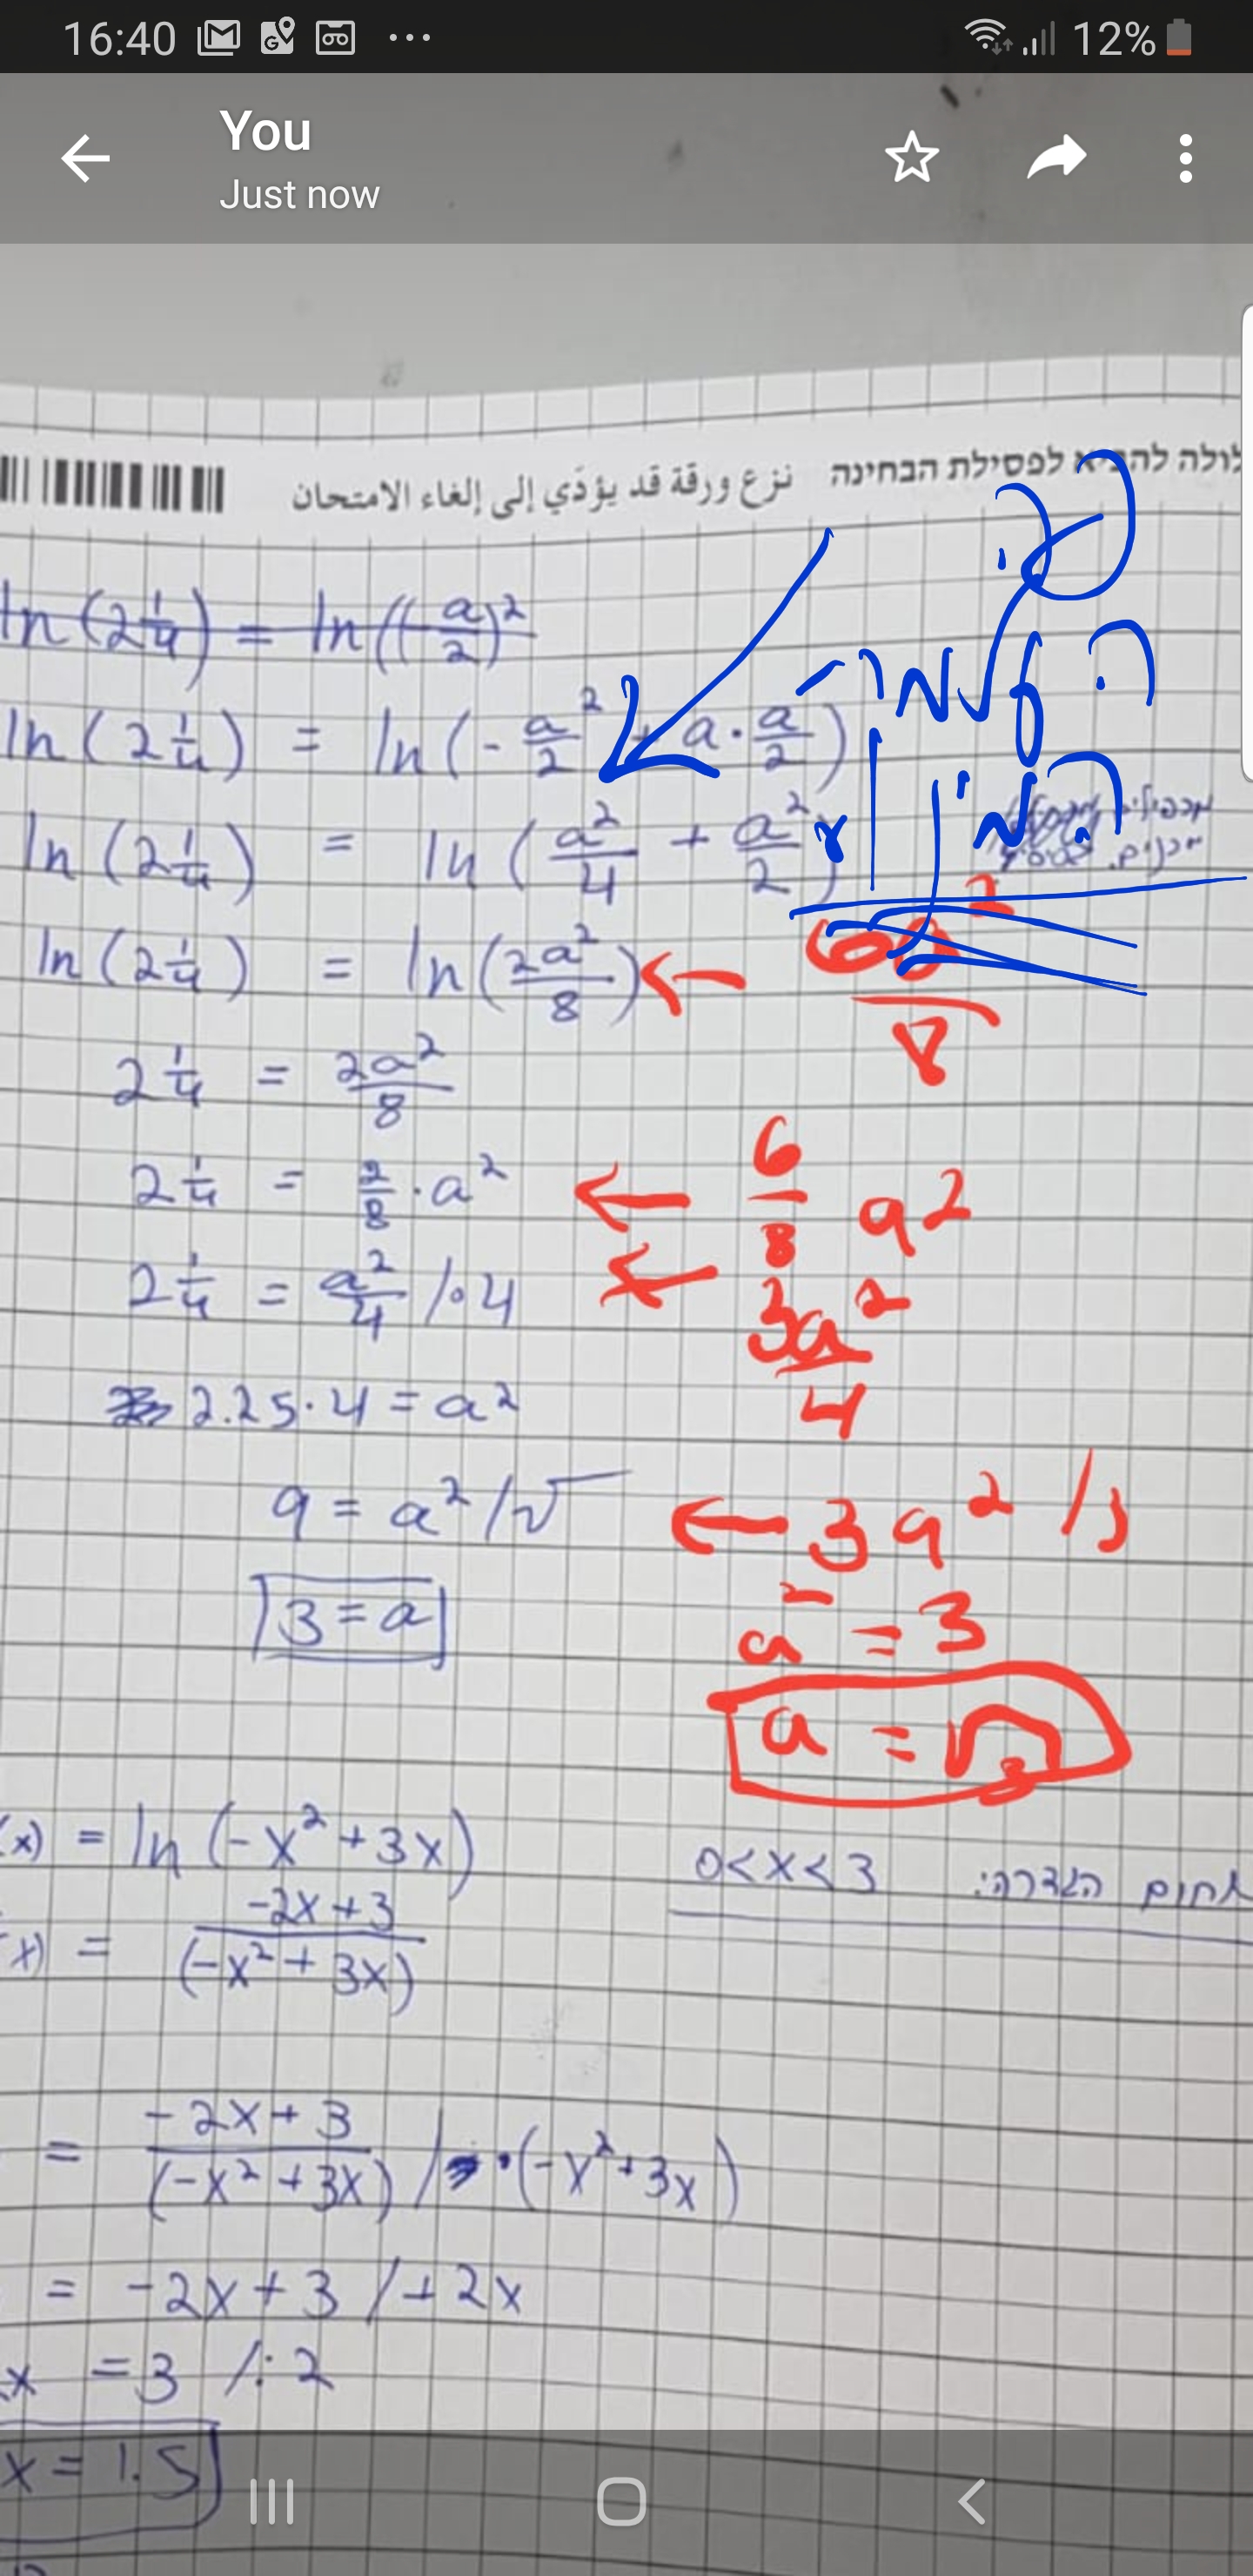 16:40 12%
You
Just now
לולה להביא לפסילת הבחינה نزع ورقة قد يؤدي إلى إلغاء الامتحان
ln(2 1/4) = ln((-a/2)²
ln(2 1/4) = ln(-a/2² + a·a/2)
ln(2 1/4) = ln(a²/4 + a²/2)
ln(2 1/4) = ln(2a²/8) ← 6a²/8
2 1/4 = 2a²/8
2 1/4 = 2/8·a² ← 6/8 a²
2 1/4 = a²/4 /·4 ← 3a²/4
2.25·4 = a²
9 = a² /√ ← 3a² /:3
3 = a
a² = 3
a = √3
(x) = ln(-x²+3x) 0<x<3 תחום הגדרה:
(x) = -2x+3/(-x²+3x)
= -2x+3/(-x²+3x) /·(-x²+3x)
= -2x+3 /+2x
x = 3 /:2
x = 1.5